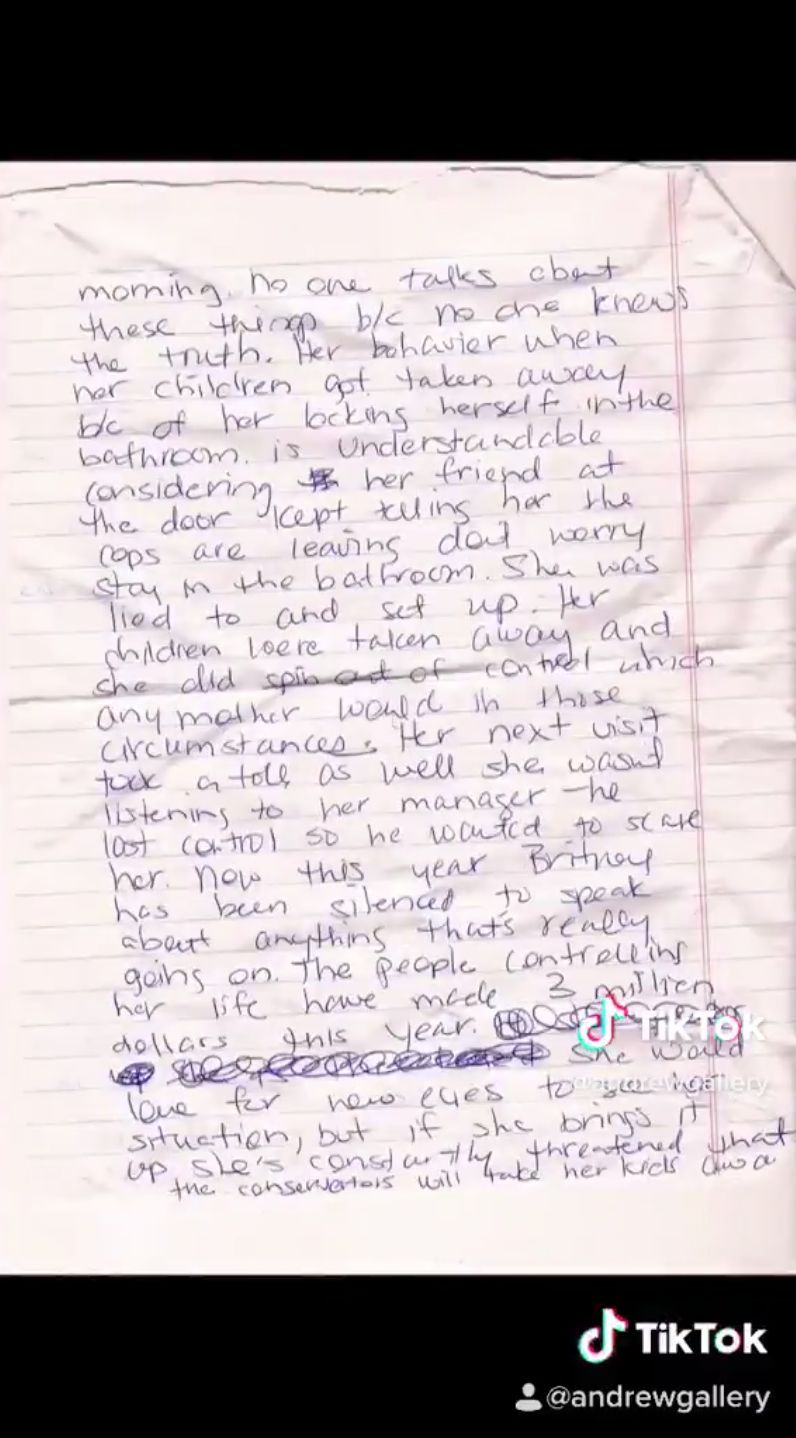 morning. no one talks about
these things b/c no one knows
the truth. Her behavior when
her children got taken away
b/c of her locking herself in the
bathroom. is understandable
considering her friend at
the door kept telling her the
cops are leaving dont worry
stay in the bathroom. She was
lied to and set up. Her
children were taken away and
she did spin out of control which
any mother would in those
circumstances. Her next visit
took a toll as well she wasnt
listening to her manager - he
lost control so he wanted to scare
her. Now this year Britney
has been silenced to speak
about anything that's really
going on. The people controlling
her life have made 3 million
dollars this year.
TikTok
She would
@andrewgallery
love for new eyes to see her
situation, but if she brings it
up she's constantly threatened that
the conservators will take her kids awa
TikTok
@andrewgallery